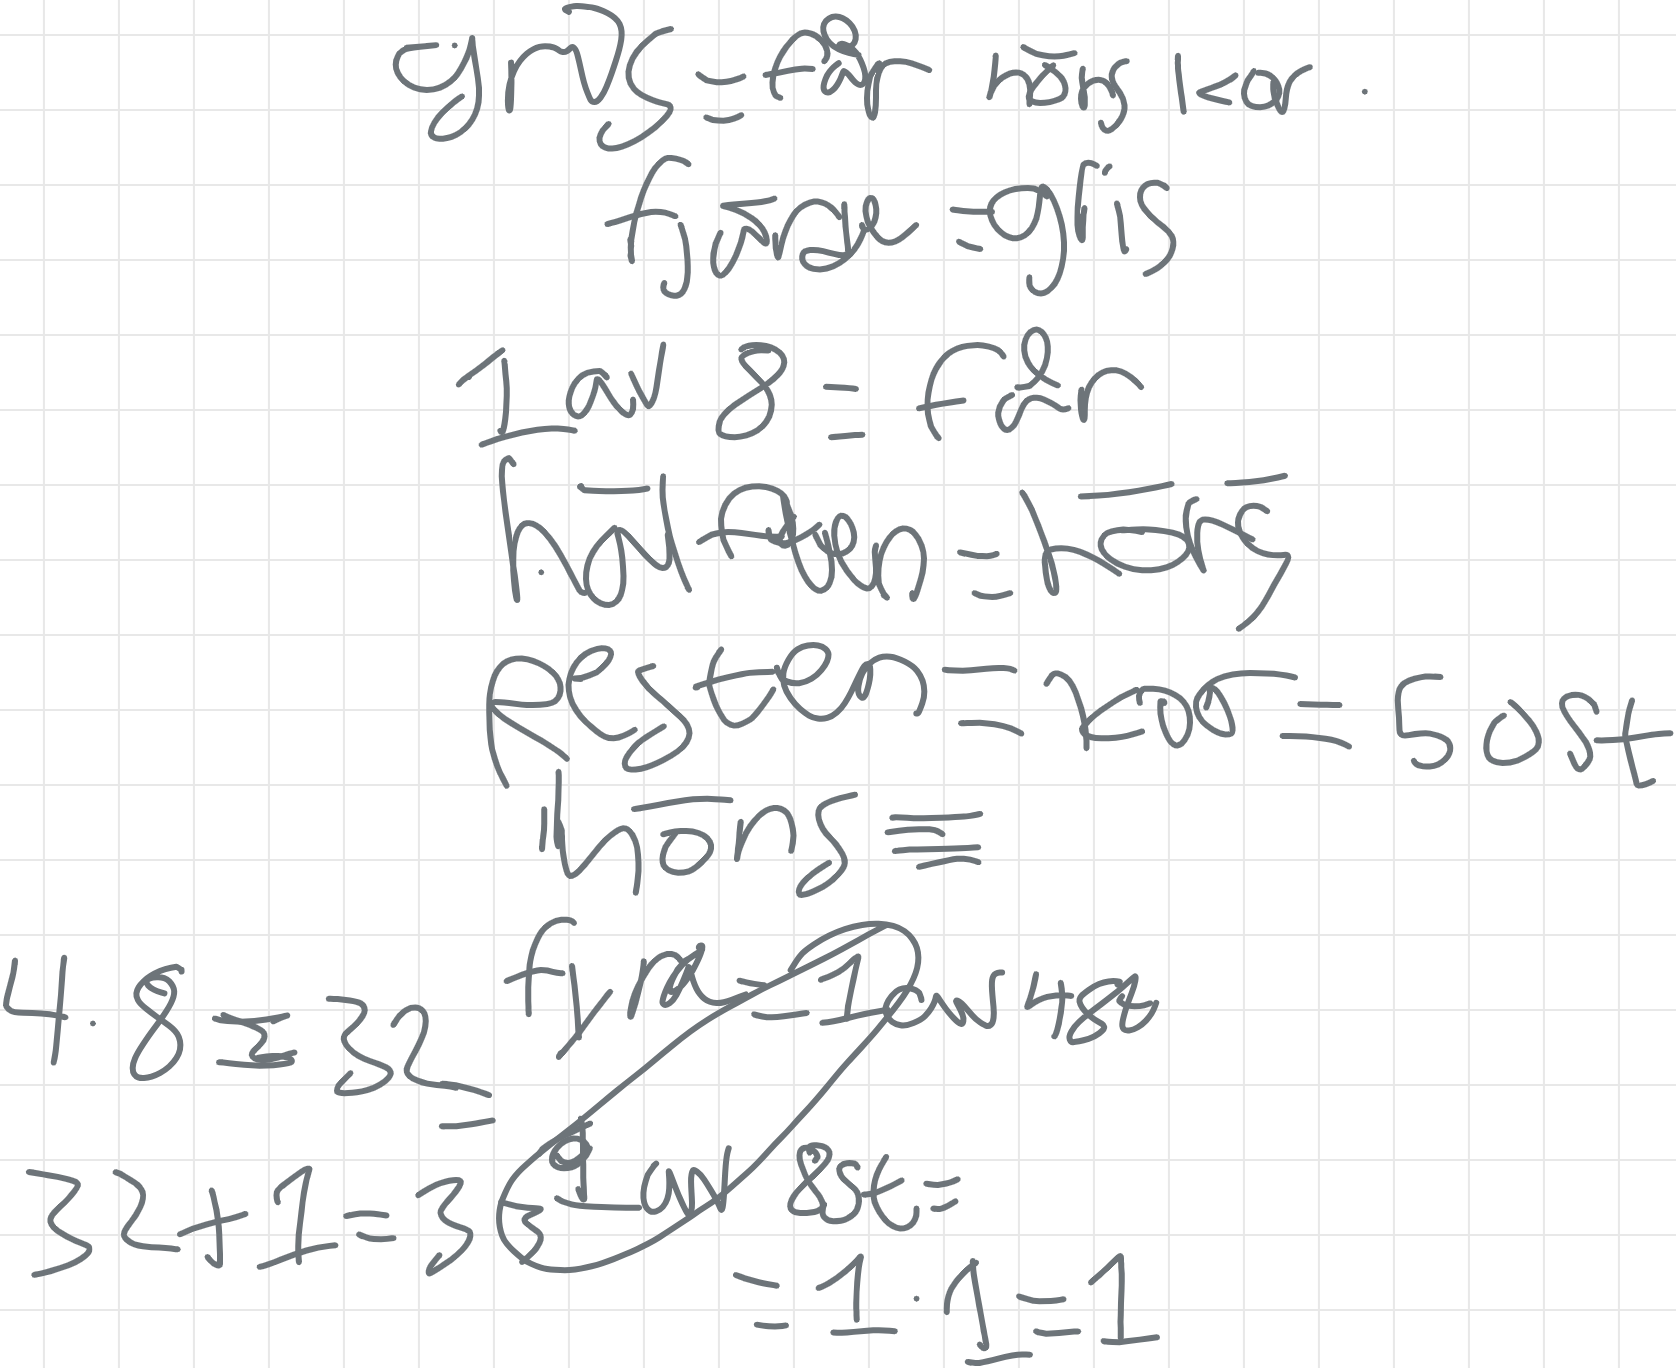 gris = får höns kor.
fjärde = gris
1 av 8 = får
hälften = höns
Resten = kor = 50st
höns =
fyra = 1 av 4 8st
4.8 = 32 =
1 av 8st =
32+1=33
= 1.1=1